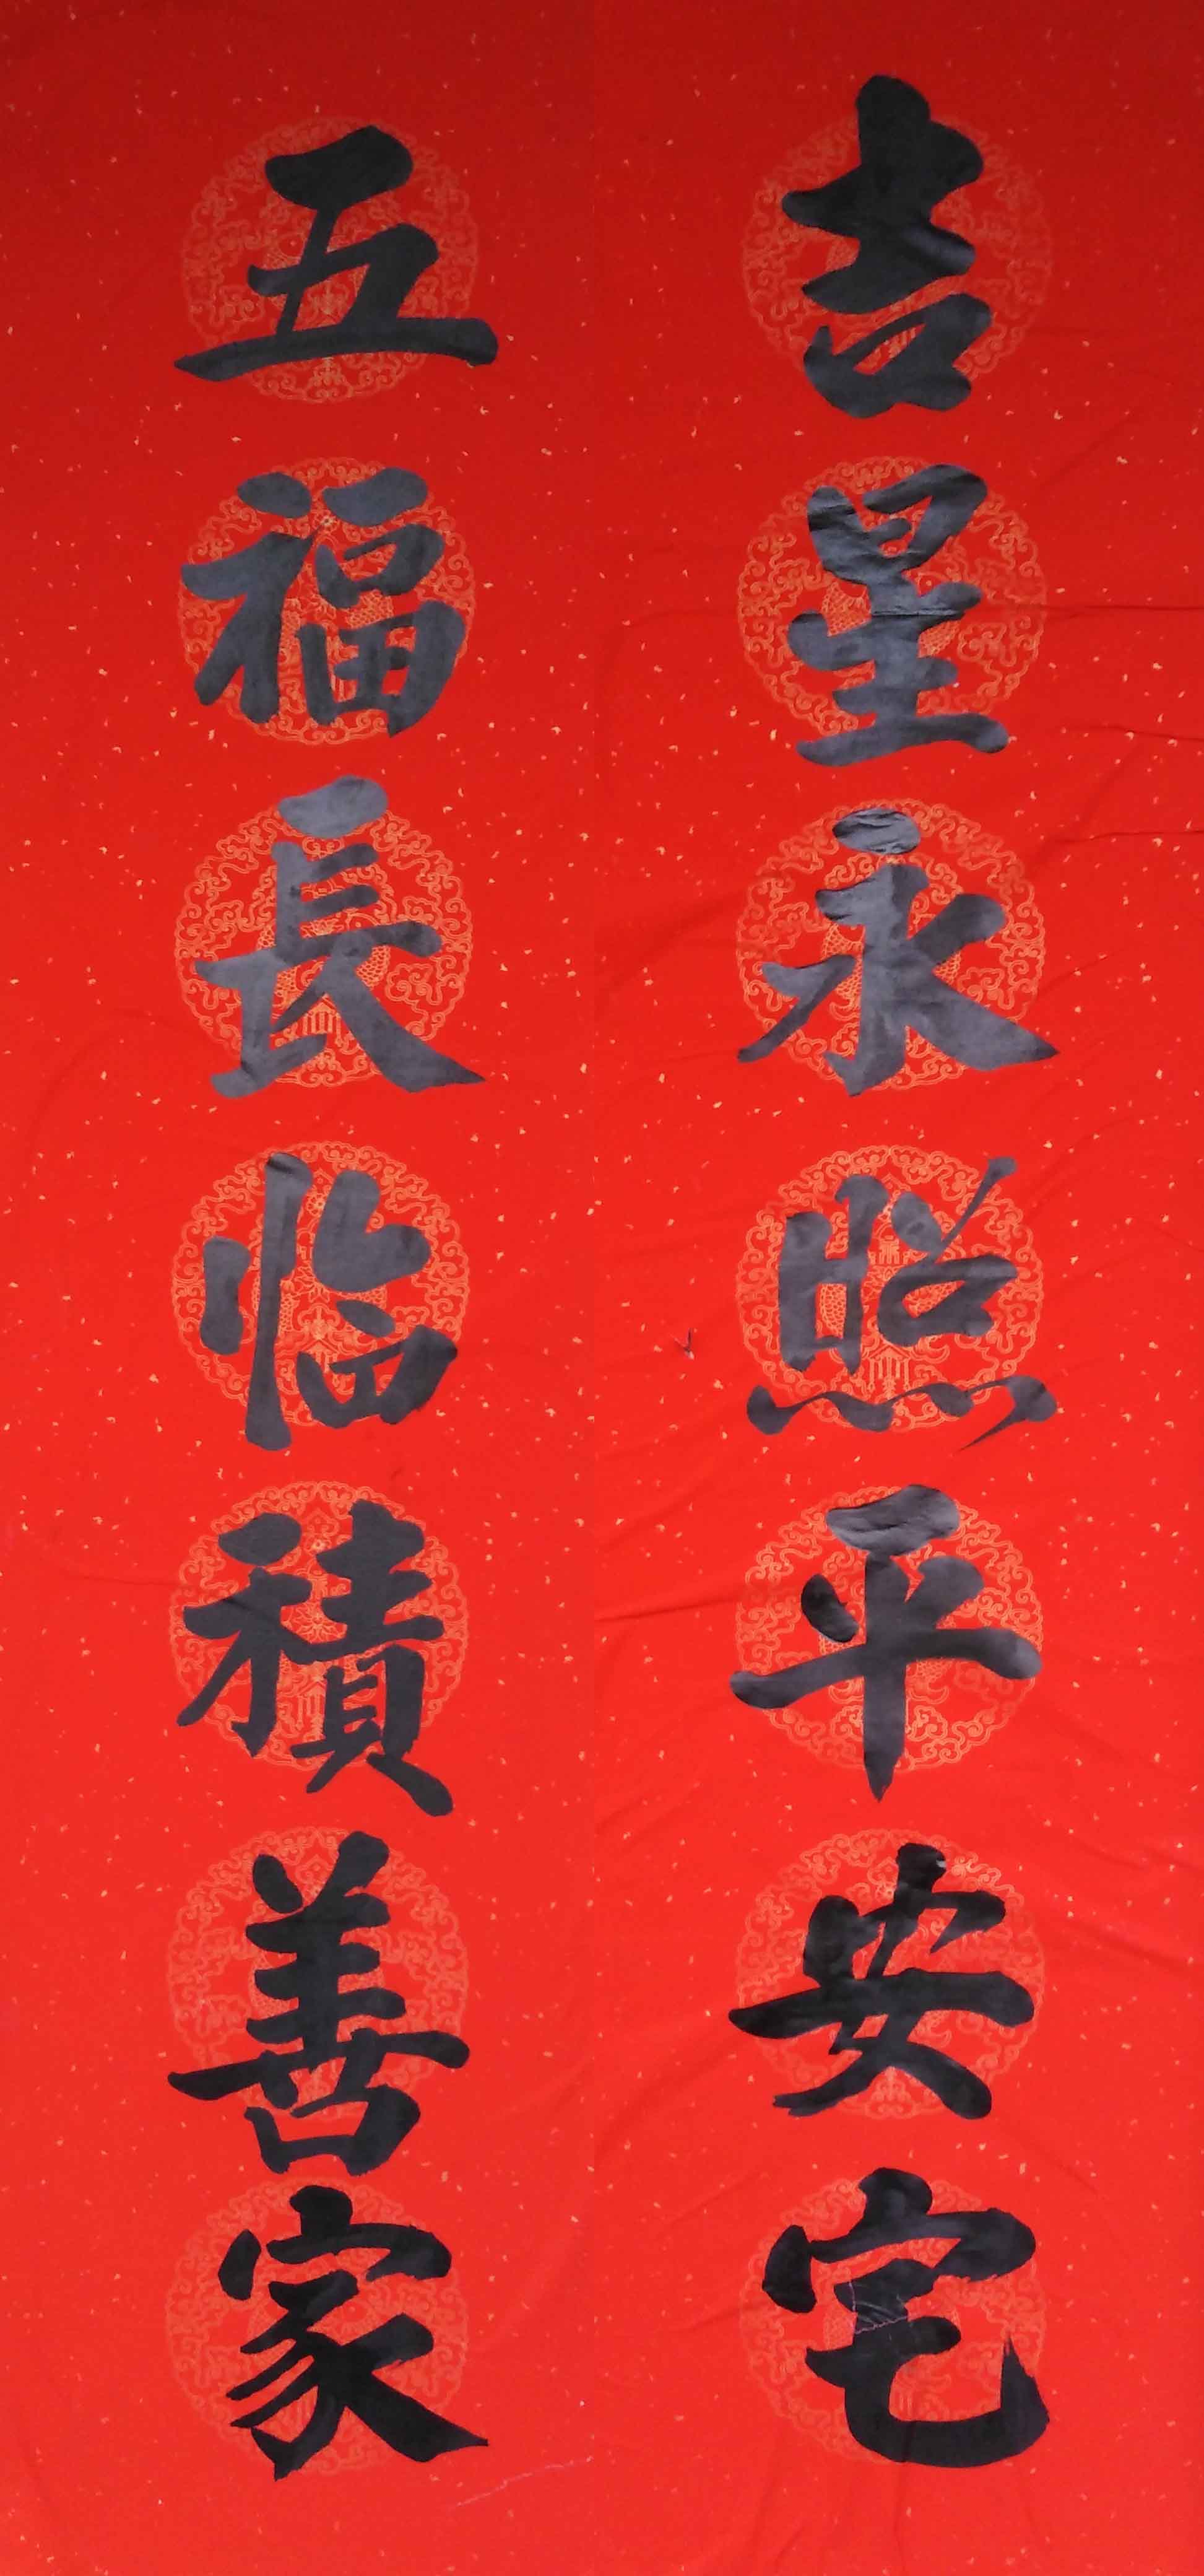 吉星永照平安宅
五福長临積善家